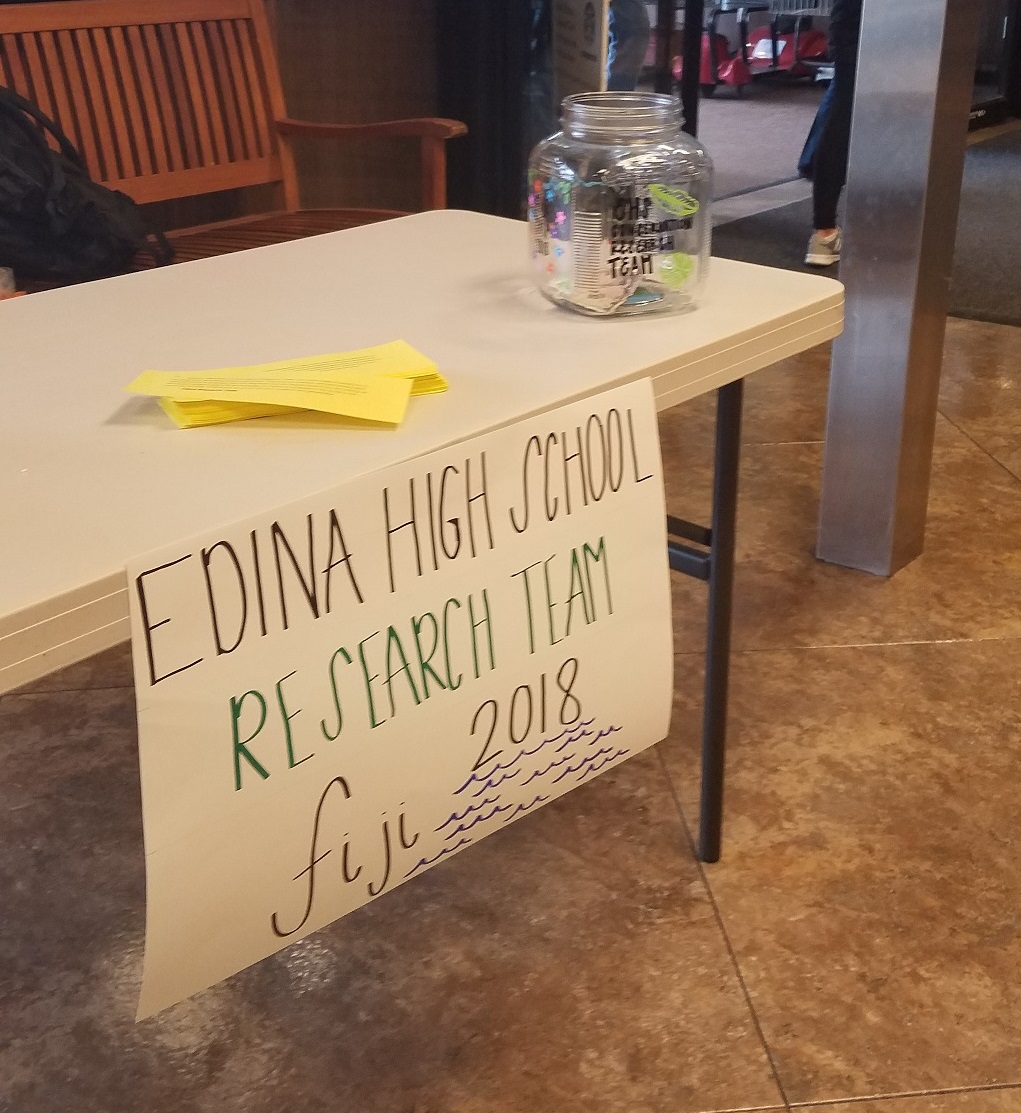 EHS
CONSERVATION
RESEARCH
TEAM
EDINA HIGH SCHOOL
RESEARCH TEAM
2018
fiji